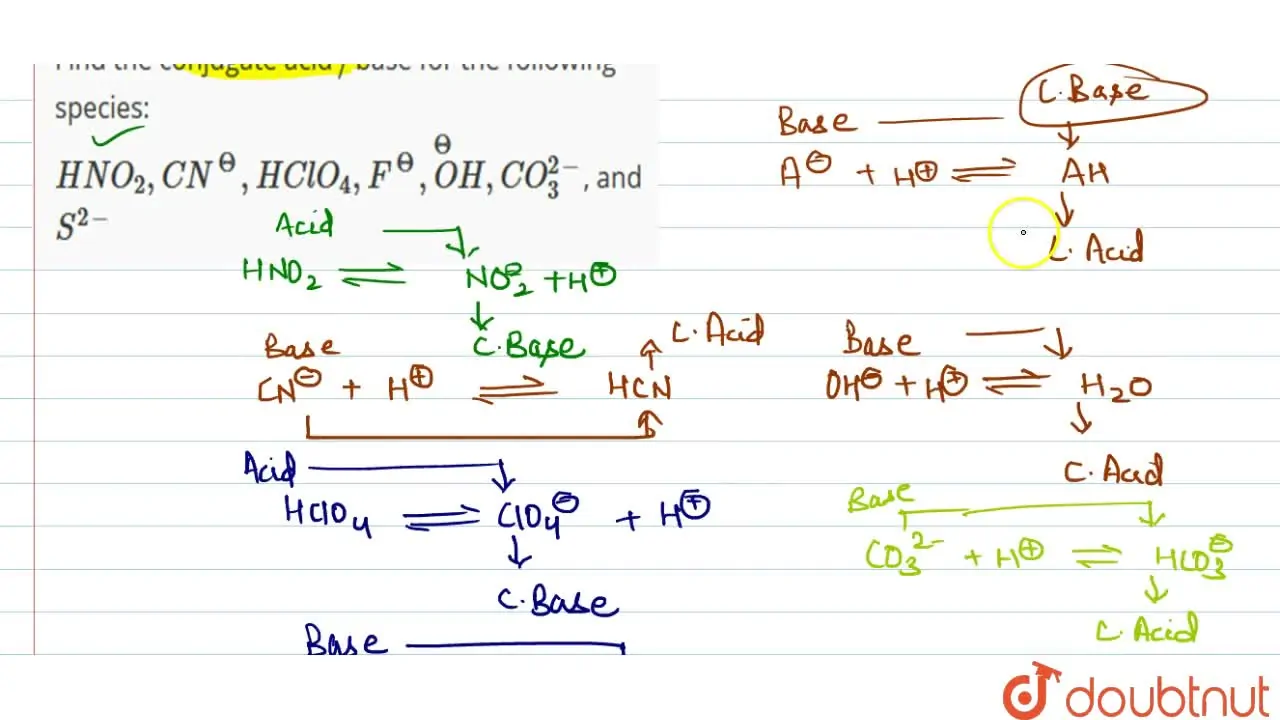 Find the conjugate acid / base for the following
species:
HNO₂, CN^⊖, HClO₄, F^⊖, O^⊖H, CO₃²⁻, and
S²⁻
Acid
HNO₂ ⇌ NO₂^⊖ + H^⊕
C. Base
Base
C. Acid
CN^⊖ + H^⊕ ⇌ HCN
Acid
HClO₄ ⇌ ClO₄^⊖ + H^⊕
C. Base
Base
C. Base
Base
A^⊖ + H^⊕ ⇌ AH
C. Acid
Base
OH^⊖ + H^⊕ ⇌ H₂O
C. Acid
Base
CO₃²⁻ + H^⊕ ⇌ HCO₃^⊖
C. Acid
doubtnut